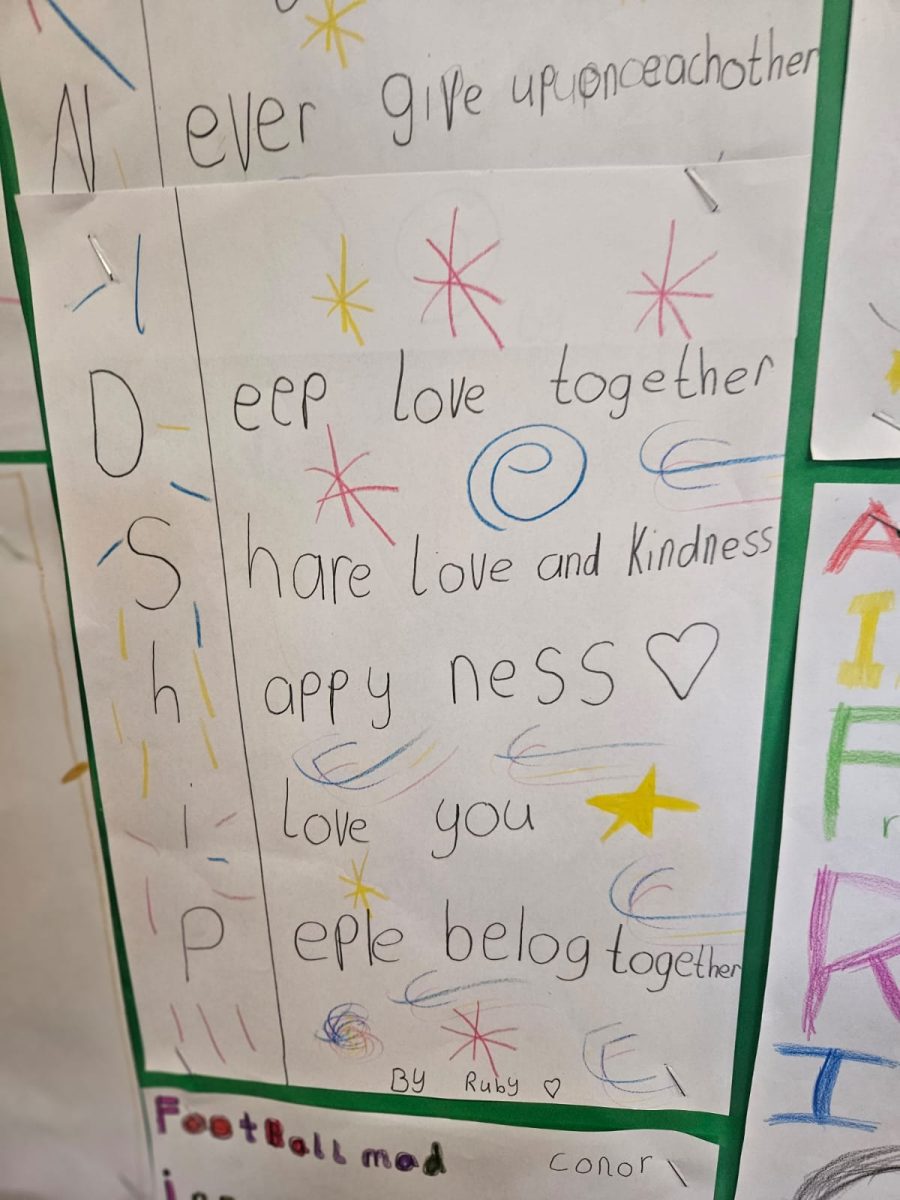 Never give up upon eachother
Deep love together
Share love and kindness
happy ness
i love you
Peple belog together
By Ruby
Football mad
conor
A
I
F
R
I